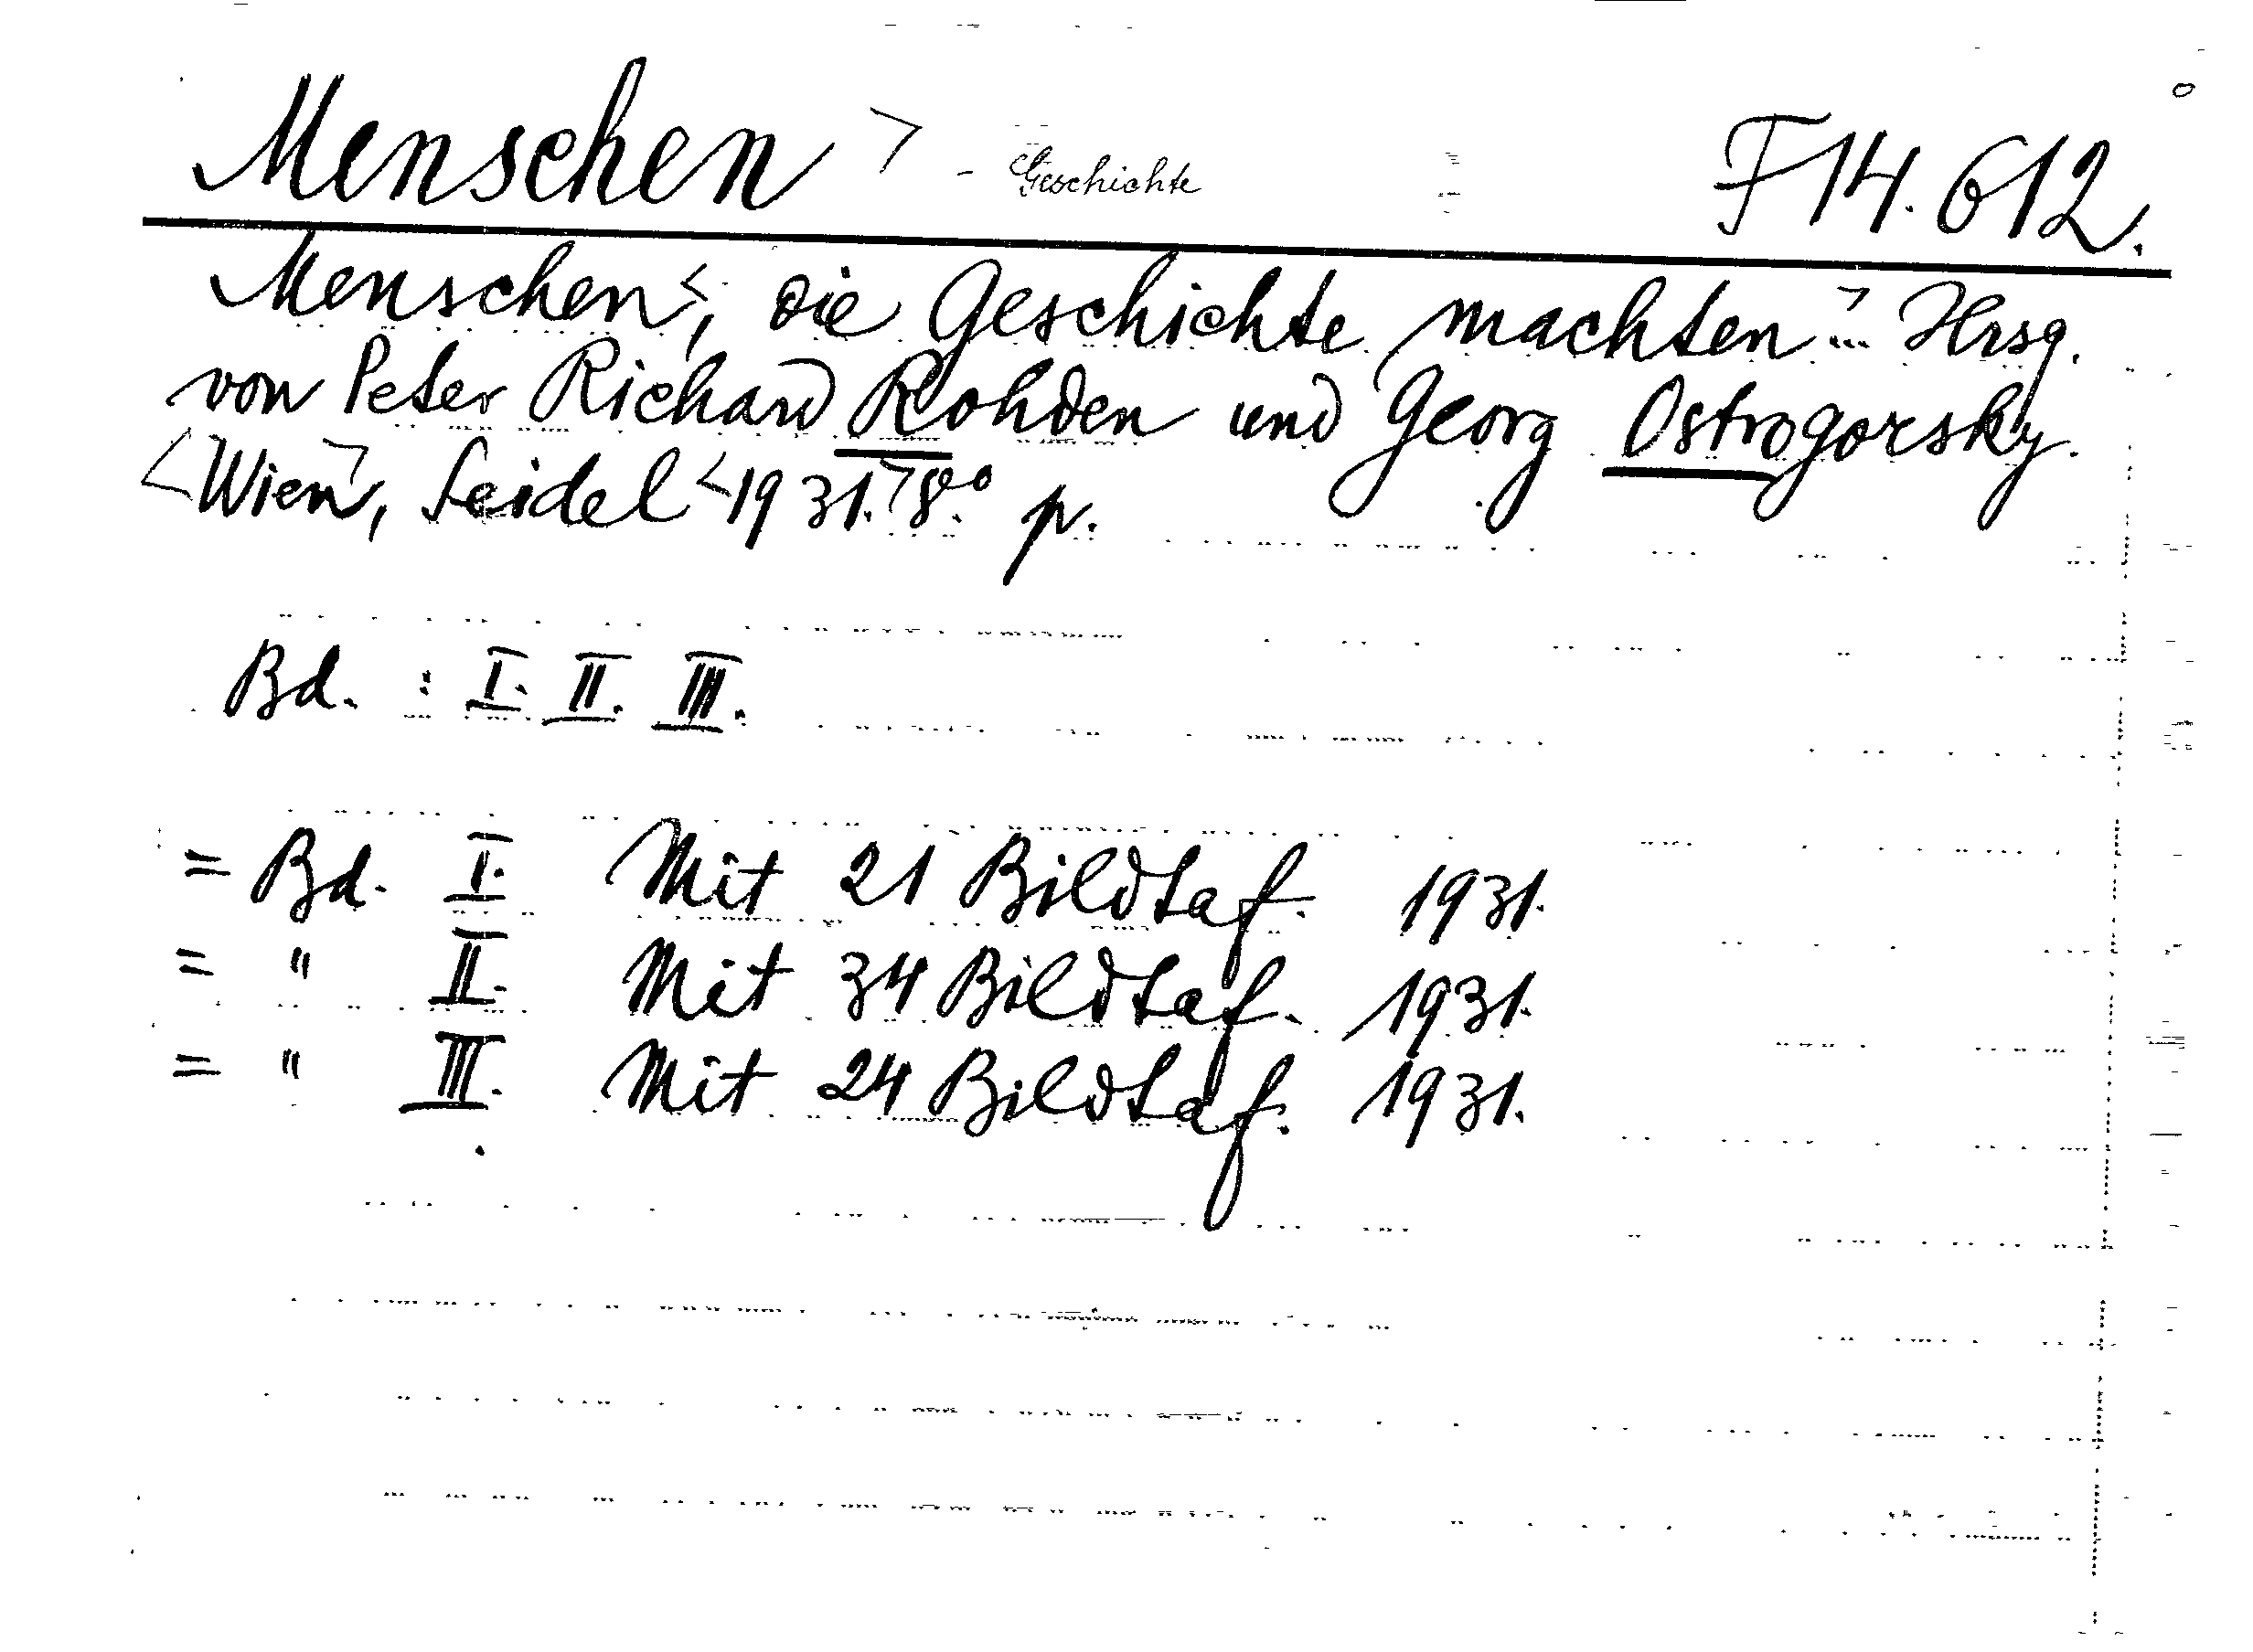 Menschen > - Geschichte F 14.612.
Menschen <, die Geschichte machten > ... Hrsg.
von Peter Richard Rohden und Georg Ostrogorsky.
<Wien>, Seidel <1931.> 8° p.
Bd. : I. II. III.
= Bd. I. Mit 21 Bildtaf. 1931.
= " II. Mit 34 Bildtaf. 1931.
= " III. Mit 24 Bildtaf. 1931.